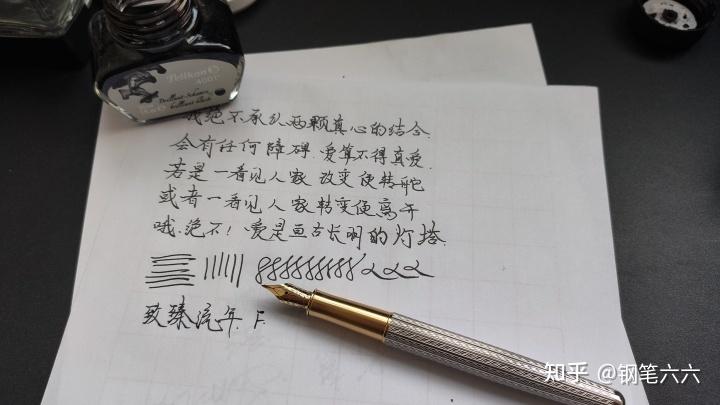 Pelikan
4001
Brilliant-Schwarz
brilliant black
我绝不承认两颗真心的结合
会有任何障碍.爱算不得真爱
若是一看见人家改变便转舵
或者一看见人家转变便离开
哦.绝不!爱是亘古长明的灯塔
致臻流年.F.
知乎 @钢笔六六